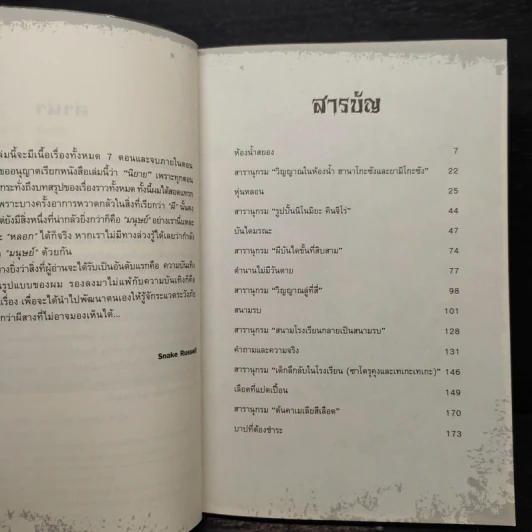 ล่มนี้จะมีเนื้อเรื่องทั้งหมด 7 ตอนและจบภายในตอน
ขออนุญาตเรียกหนังสือเล่มนี้ว่า "นิยาย" เพราะทุกตอน
กระทั่งถึงบทสรุปของเรื่องราวทั้งหมด ทั้งนี้ผมได้สอดแทรก
เพราะบางครั้งอาการหวาดกลัวในสิ่งที่เรียกว่า "ผี" นั้นคง
ต่ยังมีสิ่งหนึ่งที่น่ากลัวยิ่งกว่าก็คือ "มนุษย์" อย่างเรานี่แหละ
"หลอก" ได้ก็จริง หากเราไม่มีทางล่วงรู้ได้เลยว่ากำลัง
"มนุษย์" ด้วยกัน
างยิ่งว่าสิ่งที่ผู้อ่านจะได้รับเป็นอันดับแรกคือ ความบันเทิง
นรูปแบบของผม รองลงมาไม่แพ้กับความบันเทิงก็คือ
เรื่อง เพื่อจะได้นำไปพัฒนาตนเองให้รู้จักระแวดระวังภัย
กว่าผีสางที่ไม่อาจมองเห็นได้...
Snake Russell
สารบัญ
ห้องน้ำสยอง 7
สารานุกรม "วิญญาณในห้องน้ำ ฮานาโกะซังและยามิโกะซัง" 22
หุ่นหลอน 25
สารานุกรม "รูปปั้นนิโนมิยะ คินจิโร่" 44
บันไดมรณะ 47
สารานุกรม "ผีบันไดขั้นที่สิบสาม" 74
ตำนานไม่มีวันตาย 77
สารานุกรม "วิญญาณสู่ที่สี่" 98
สนามรบ 101
สารานุกรม "สนามโรงเรียนกลายเป็นสนามรบ" 128
คำถามและความจริง 131
สารานุกรม "เด็กลึกลับในโรงเรียน (ซาโตรุคุงและเทเกะเทเกะ)" 146
เลือดที่แปดเปื้อน 149
สารานุกรม "ต้นคาเมเลียสีเลือด" 170
บาปที่ต้องชำระ 173